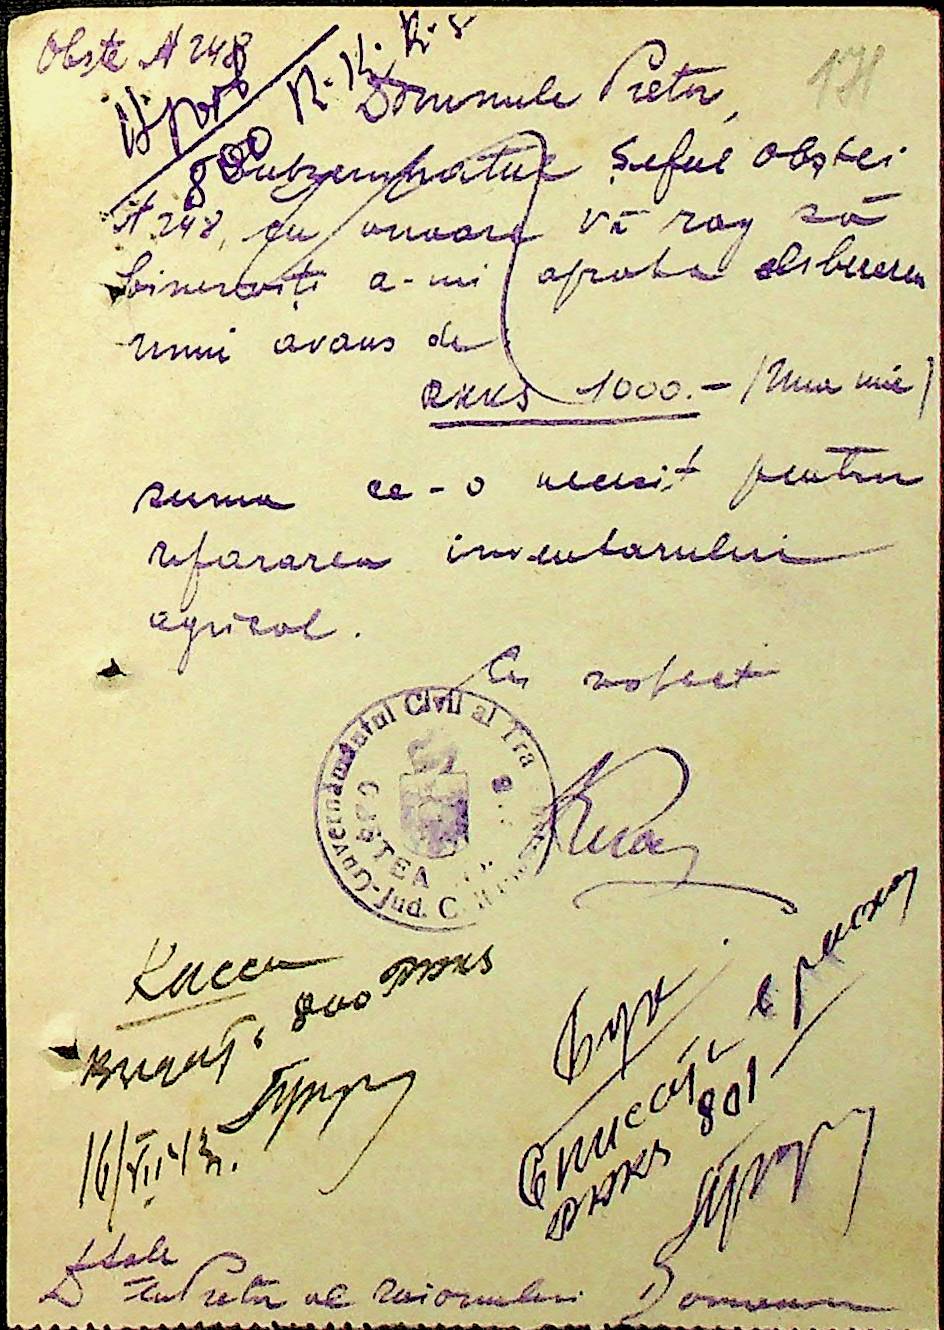 Obște N 248
171
800 R.K.K.S
Domnule Pretor,
Subsemnatul Șeful Obștei
N 248, cu onoare vă rog să
binevoiți a-mi aproba eliberarea
unui avans de
RKKS 1000.- (Una mie)
suma ce-o necesit pentru
repararea inventarului
agricol.
Cu respect
Guvernământul Civil al Tra
Jud. C.
Касса
800 RKKS
16/VII 43
Списать в расход
RKKS 801
D sale
D lui Pretor al Raionului